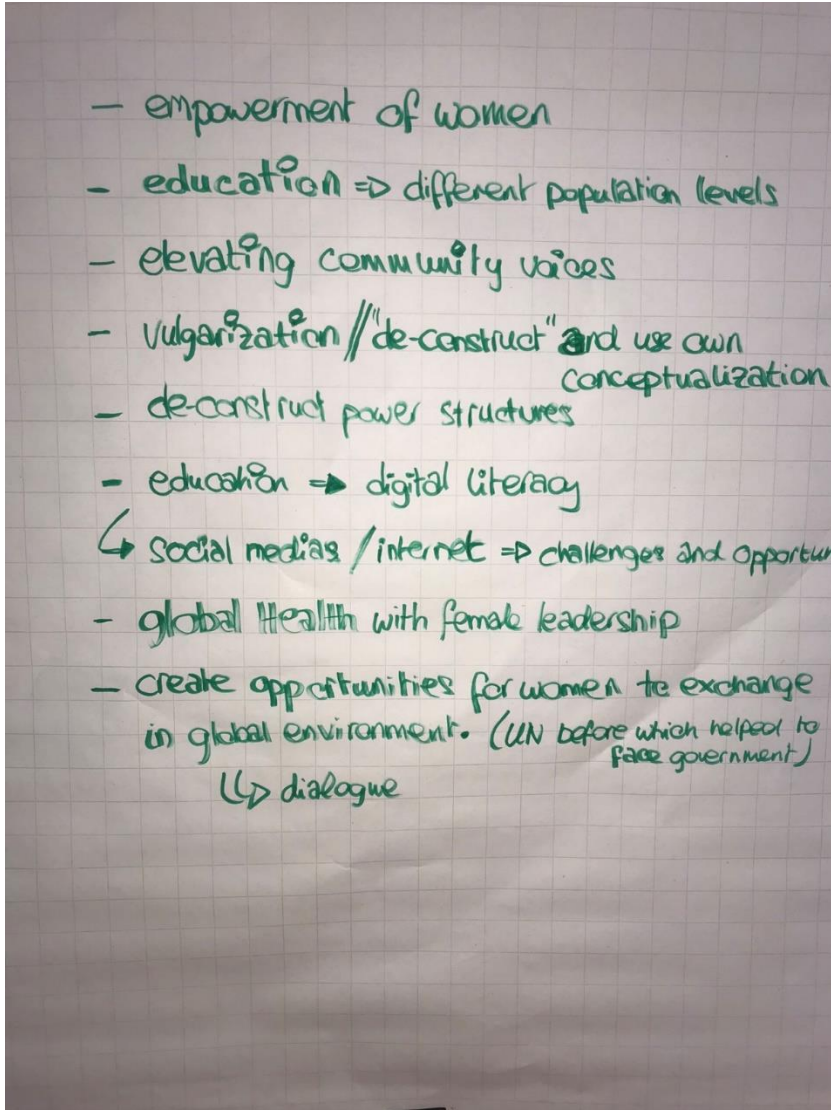 - empowerment of women
- education => different population levels
- elevating community voices
- vulgarization // "de-construct" and use own
conceptualization
- de-construct power structures
- education => digital literacy
↳ social medias / internet => challenges and opportun
- global Health with female leadership
- create opportunities for women to exchange
in global environment. (UN before which helped to
face government)
↳ dialogue